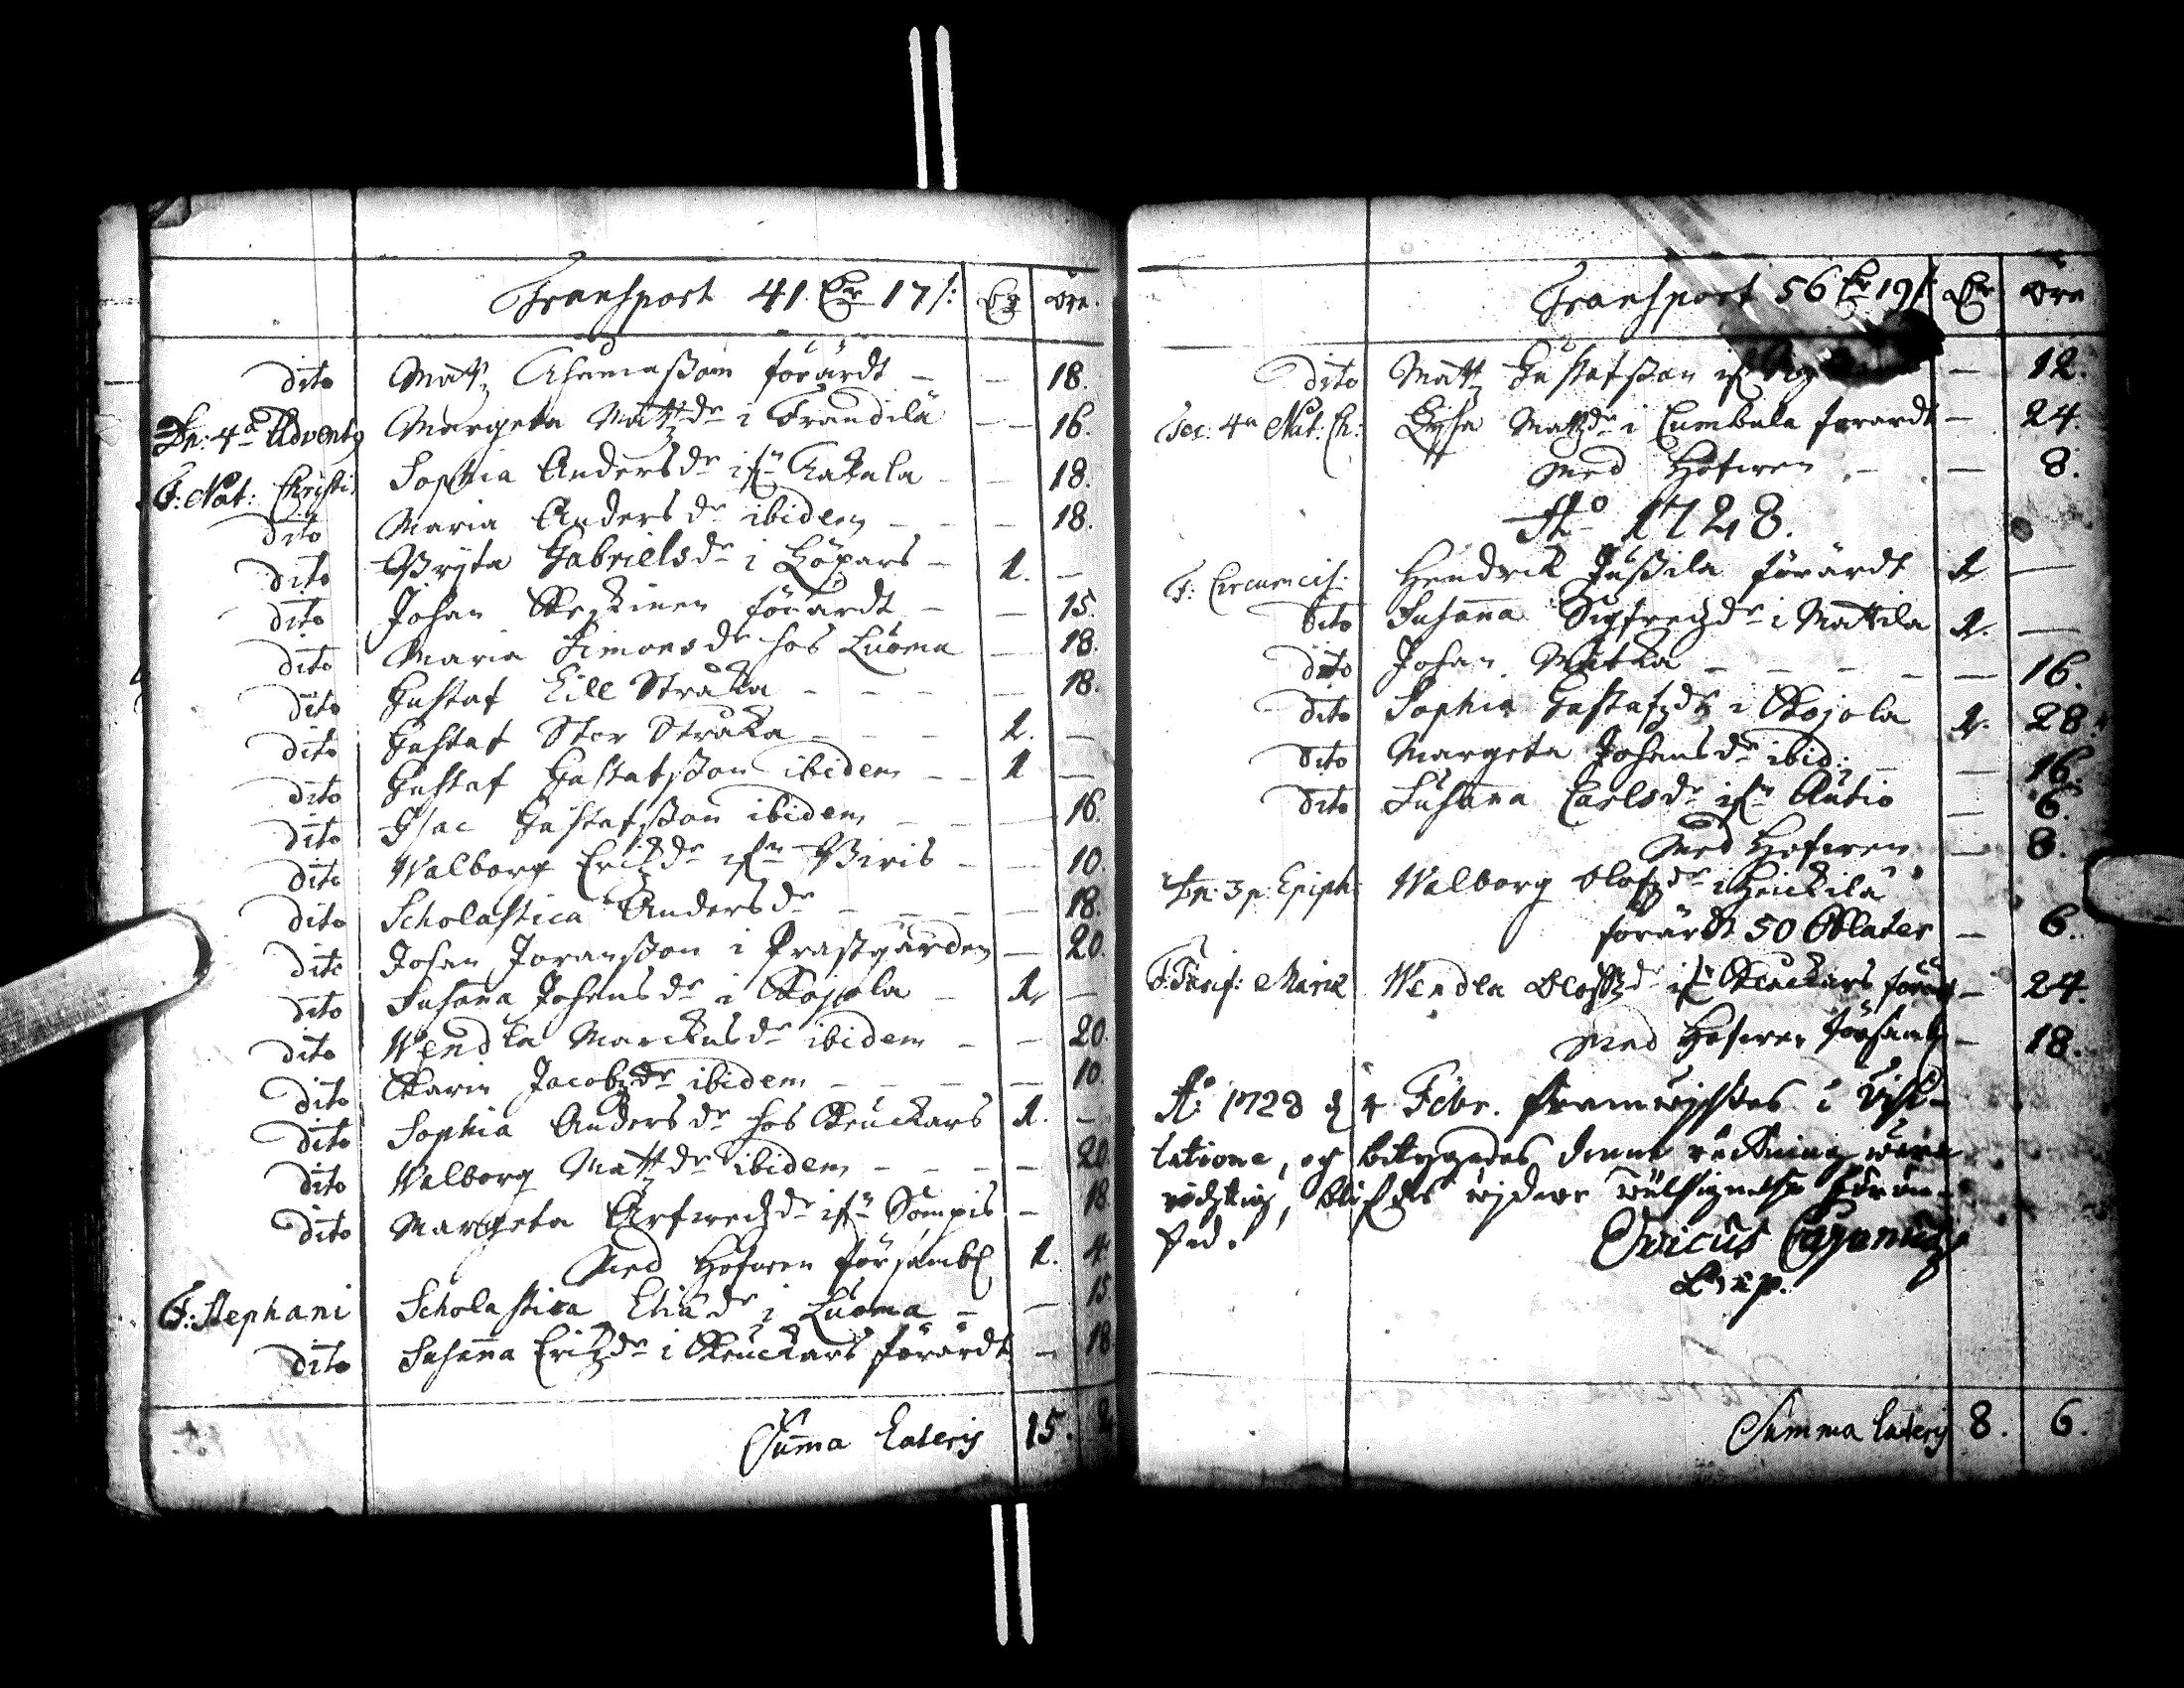 Transport 41. Dr 17/: Dr öre.
dito Matz Thomasson förärdt — — 18.
Dn: 4a Adventg Margeta Mattzdr i Frandilä — — 16.
F. Nat: Christi Sophia Andersdr ifrn Kakula — — 18.
dito Maria Andersdr ibidem — — — 18.
dito Bryta Gabrielsdr i Löpars — 1. —
dito Johan Keskinen förärdt — — 15.
dito Maria Simonsdr hos Luoma — 18.
dito Gustaf Lill Straka — — — 18.
dito Gustaf Stor Straka — — — 1. —
dito Gustaf Gustafsson ibidem — — 1 —
dito Isac Gustafsson ibidem — — — 16.
dito Walborg Erichzdr ifrn Biris — — 10.
dito Scholastica Andersdr — — — — 18.
dito Johan Joransson i Prästgården — 20.
dito Susanna Johansdr i Kojola — 1. —
dito Wendla Marckusdr ibidem — — 20.
dito Karin Jacobzdr ibidem — — — 10.
dito Sophia Andersdr hos Keuckars 1. —
dito Walborg Mattzdr ibidem — — — — 20
dito Margeta Arfwedzdr ifrn Sompis — 18
Med Håfwen försambl 1. 4.
F: Stephani Scholastica Eliædr i Luoma — — 15
dito Susanna Erichzdr i Keuckars förärdt — 18
Summa Lateris 15. 2
Transport 56 Dr 19/: Dr öre
dito Mattz Gustafsson ifrn — 12.
Fer: 4a Nat: Ch: Lysa Mattzdr i Cumbula förärdt — 24.
Med Håfwen — — 8.
Ao 1728.
F: Circumcis: Hendrick Jussila förärdt 1. —
dito Susanna Sigfredzdr i Mattila 1. —
dito Johan Matka — — — — 16.
dito Sophia Gustafzdr i Kojola 1. 28.
dito Margeta Johansdr ibid: — — 16.
dito Susanna Carlsdr ifrn Autio — 6.
Med Håfwen — 8.
Dn: 3 p: Epiph: Walborg Olofzdr i Heickilä
förärdt 50 Oblater — 6.
F: Purif: Mariæ Wendla Olofzdr ifrn Keuckars förärdt — 24.
Med Håfwen församb — 18.
Ao 1728 d. 4 Febr. framwijstes i Visi-
tatione, och betygades denne räckning wara
richtig, wälsignelse
Ericus Cajanus
Summa Lateris 8. 6.